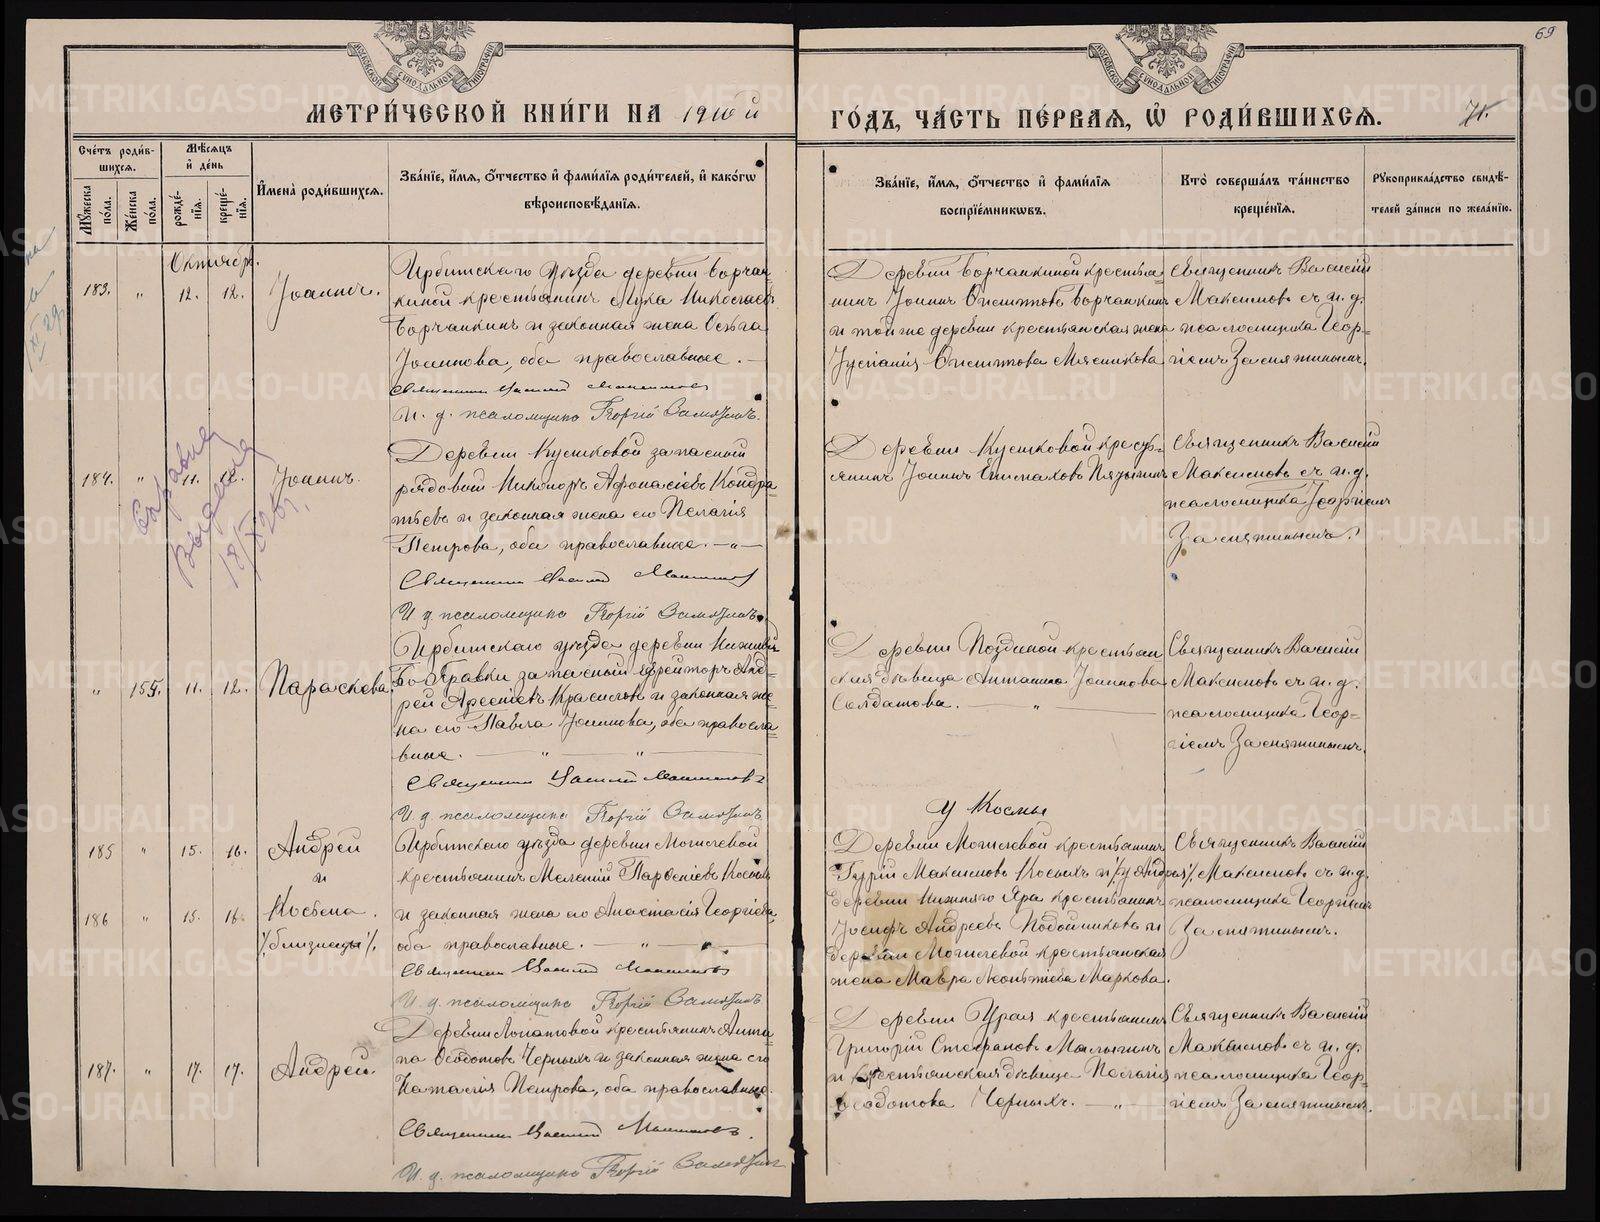 69
МЕТРИ́ЧЕСКОЙ КНИ́ГИ НА 1910 й
ГО́ДЪ, ЧА́СТЬ ПЕ́РВАѦ, Ѡ҆ РОДИ́ВШИХСѦ.
71.
Сче́тъ роди́в-
шихсѧ.
Мꙋ́жеска по́ла.
Же́нска по́ла.
Мѣ́сѧцъ и҆ де́нь
рожде́-нїѧ.
креще́-нїѧ.
И҆мена̀ роди́вшихсѧ.
Зва́нїе, и҆́мѧ, ѻ҆́тчество и҆ фами́лїѧ роди́телей, и҆ како́гѡ
вѣроисповѣ́данїѧ.
Зва́нїе, и҆́мѧ, ѻ҆́тчество и҆ фами́лїѧ
воспрїе́мникѡвъ.
Кто̀ соверша́лъ та́инство
креще́нїѧ.
Рꙋкоприкла́дство свидѣ́-
телей за́писи по жела́нїю.
Октябрь.
183. " 12. 12. Іоаннъ.
Ирбитскаго уѣзда деревни Борчан-
киной крестьянинъ Лука Николаевъ
Борчанкинъ и законная жена Ольга
Іоаннова, оба православные. —
Священникъ Василій Максимовъ
И. д. псаломщика Георгій Замятинъ.
Деревни Борчанкиной крестья-
нинъ Іоаннъ Борчанкинъ
и той же деревни крестьянская жена
Мясникова
Священникъ Василій
Максимовъ съ и. д.
псаломщика Геор-
гіемъ Замятинымъ.
184. " 11. 12. Іоаннъ.
Справка
выдана
18/XI 26 г.
Деревни Кушковой запасный
рядовый Никаноръ Афонасіевъ Кондра-
тьевъ и законная жена его Пелагія
Петрова, оба православные. — " —
Священникъ Василій Максимовъ
И д псаломщика Георгій Замятинъ.
Деревни Кушковой кресть-
янинъ Іоаннъ
Священникъ Василій
Максимовъ съ и. д.
псаломщика Георгіемъ
Замятинымъ.
" 155. 11. 12. Параскева.
Ирбитскаго уѣзда деревни Нижней
запасный ефрейторъ Анд-
рей Арсеніевъ Красиловъ и законная же-
на его Павла Іоаннова, оба православ-
ные. — " — " —
Священникъ Василій Максимовъ
И д псаломщика Георгій Замятинъ
Деревни крестьян-
ская дѣвица Антонина Іоаннова
Солдатова. — " —
Священникъ Василій
Максимовъ съ и. д.
псаломщика Геор-
гіемъ Замятинымъ.
у Космы
185 " 15. 16. Андрей
и
186 " 15. 16. Косьма.
/близнецы/.
Ирбитскаго уѣзда деревни Могилевой
крестьянинъ Мелетій Парѳеніевъ Косыхъ
и законная жена его Анастасія Георгіева,
оба православные. — " — " —
Священникъ Василій Максимовъ
И. д. псаломщика Георгій Замятинъ
Деревни Могилевой крестьянинъ
Максимовъ Косыхъ и /у Андрея/
деревни Нижняго Яра крестьянинъ
Іосифъ Андреевъ и
деревни Могилевой крестьянская
жена Мавра Леонтьева Маркова.
Священникъ Василій
Максимовъ съ и. д.
псаломщика Георгіемъ
Замятинымъ.
187. " 17. 17. Андрей.
Деревни Лопатовой крестьянинъ
Ѳедотовъ Черныхъ и законная жена его
Наталія Петрова, оба православные.
Священникъ Василій Максимовъ.
И. д. псаломщика Георгій Замятинъ
Деревни крестьянинъ
Григорій Стефановъ Малыгинъ
и крестьянская дѣвица Пелагія
Ѳеодотова Черныхъ. — " —
Священникъ Василій
Максимовъ съ и. д.
псаломщика Геор-
гіемъ Замятинымъ.
METRIKI.GASO-URAL.RU